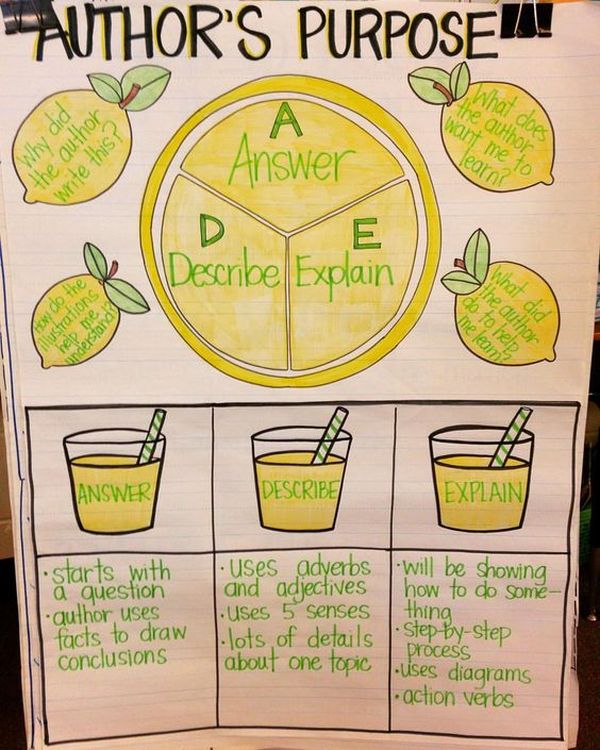 AUTHOR'S PURPOSE
Why did
the author
write this?
What does
the author
want me to
learn?
A
Answer
D
Describe
E
Explain
How do the
illustrations
help me
understand?
What did
the author
do to help
me learn?
ANSWER
DESCRIBE
EXPLAIN
• starts with
a question
• author uses
facts to draw
conclusions
• uses adverbs
and adjectives
• uses 5 senses
• lots of details
about one topic
• will be showing
how to do some-
thing
• step-by-step
process
• uses diagrams
• action verbs